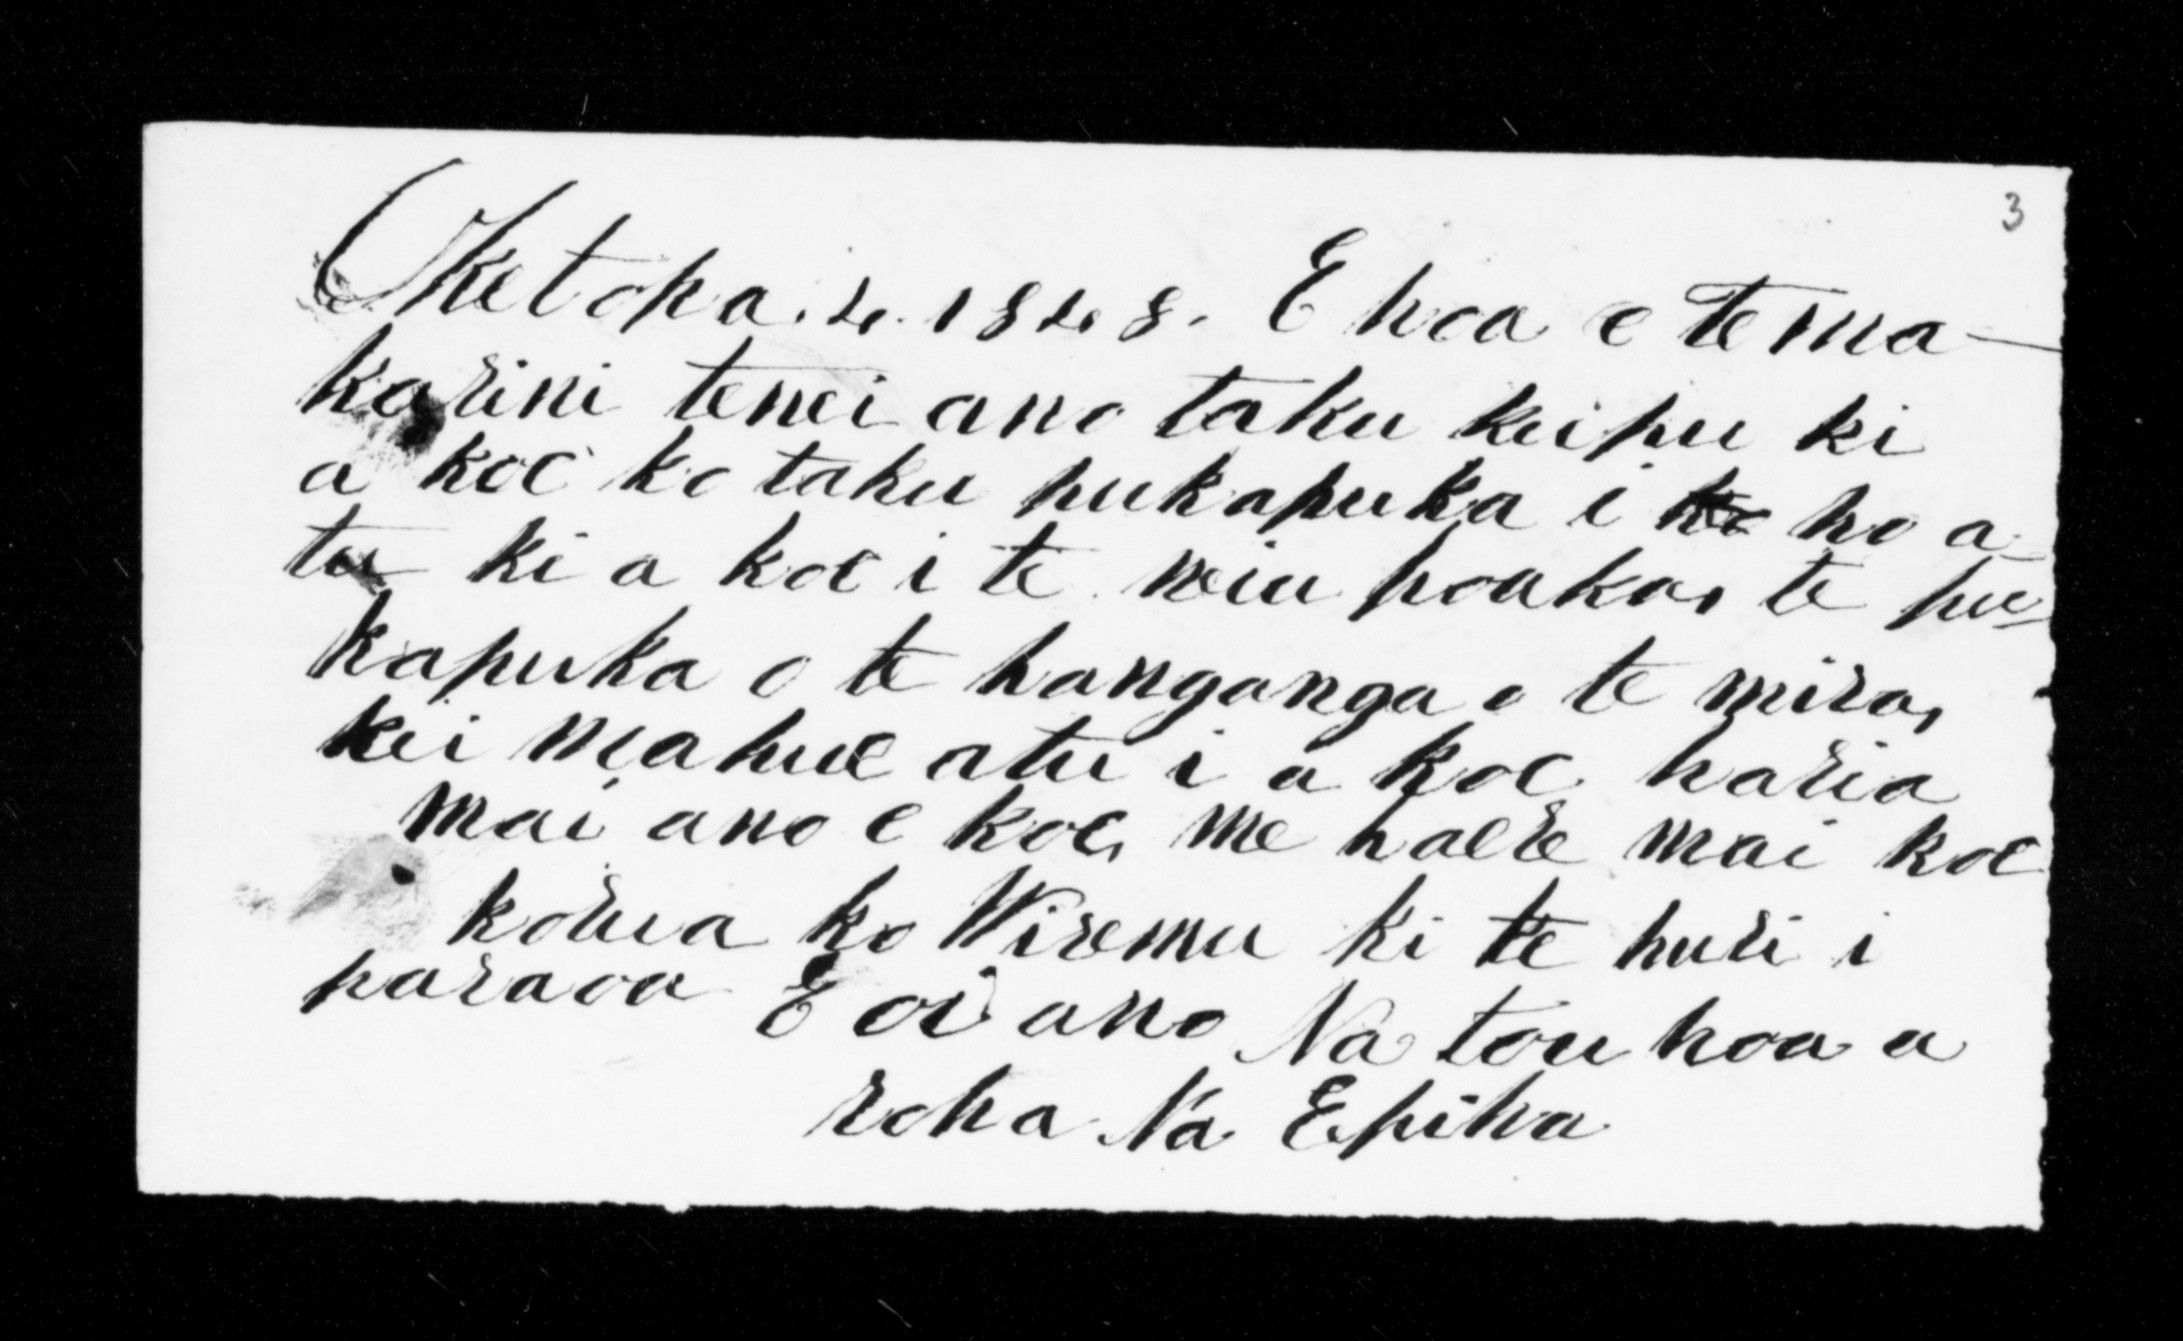 3
Oketopa. 4. 1848. E hoa e te ma-
karini tenei ano taku kupu ki
a koe ko taku pukapuka i ho a-
tu ki a koe i te poaka, te pu-
kapuka o te hanganga o te mira,
kei mahue atu i a koe haria
mai ano e koe, me haere mai koe
korua ko Wiremu ki te huri i
paraoa E oi ano Na tou hoa a
roha Na Epiha